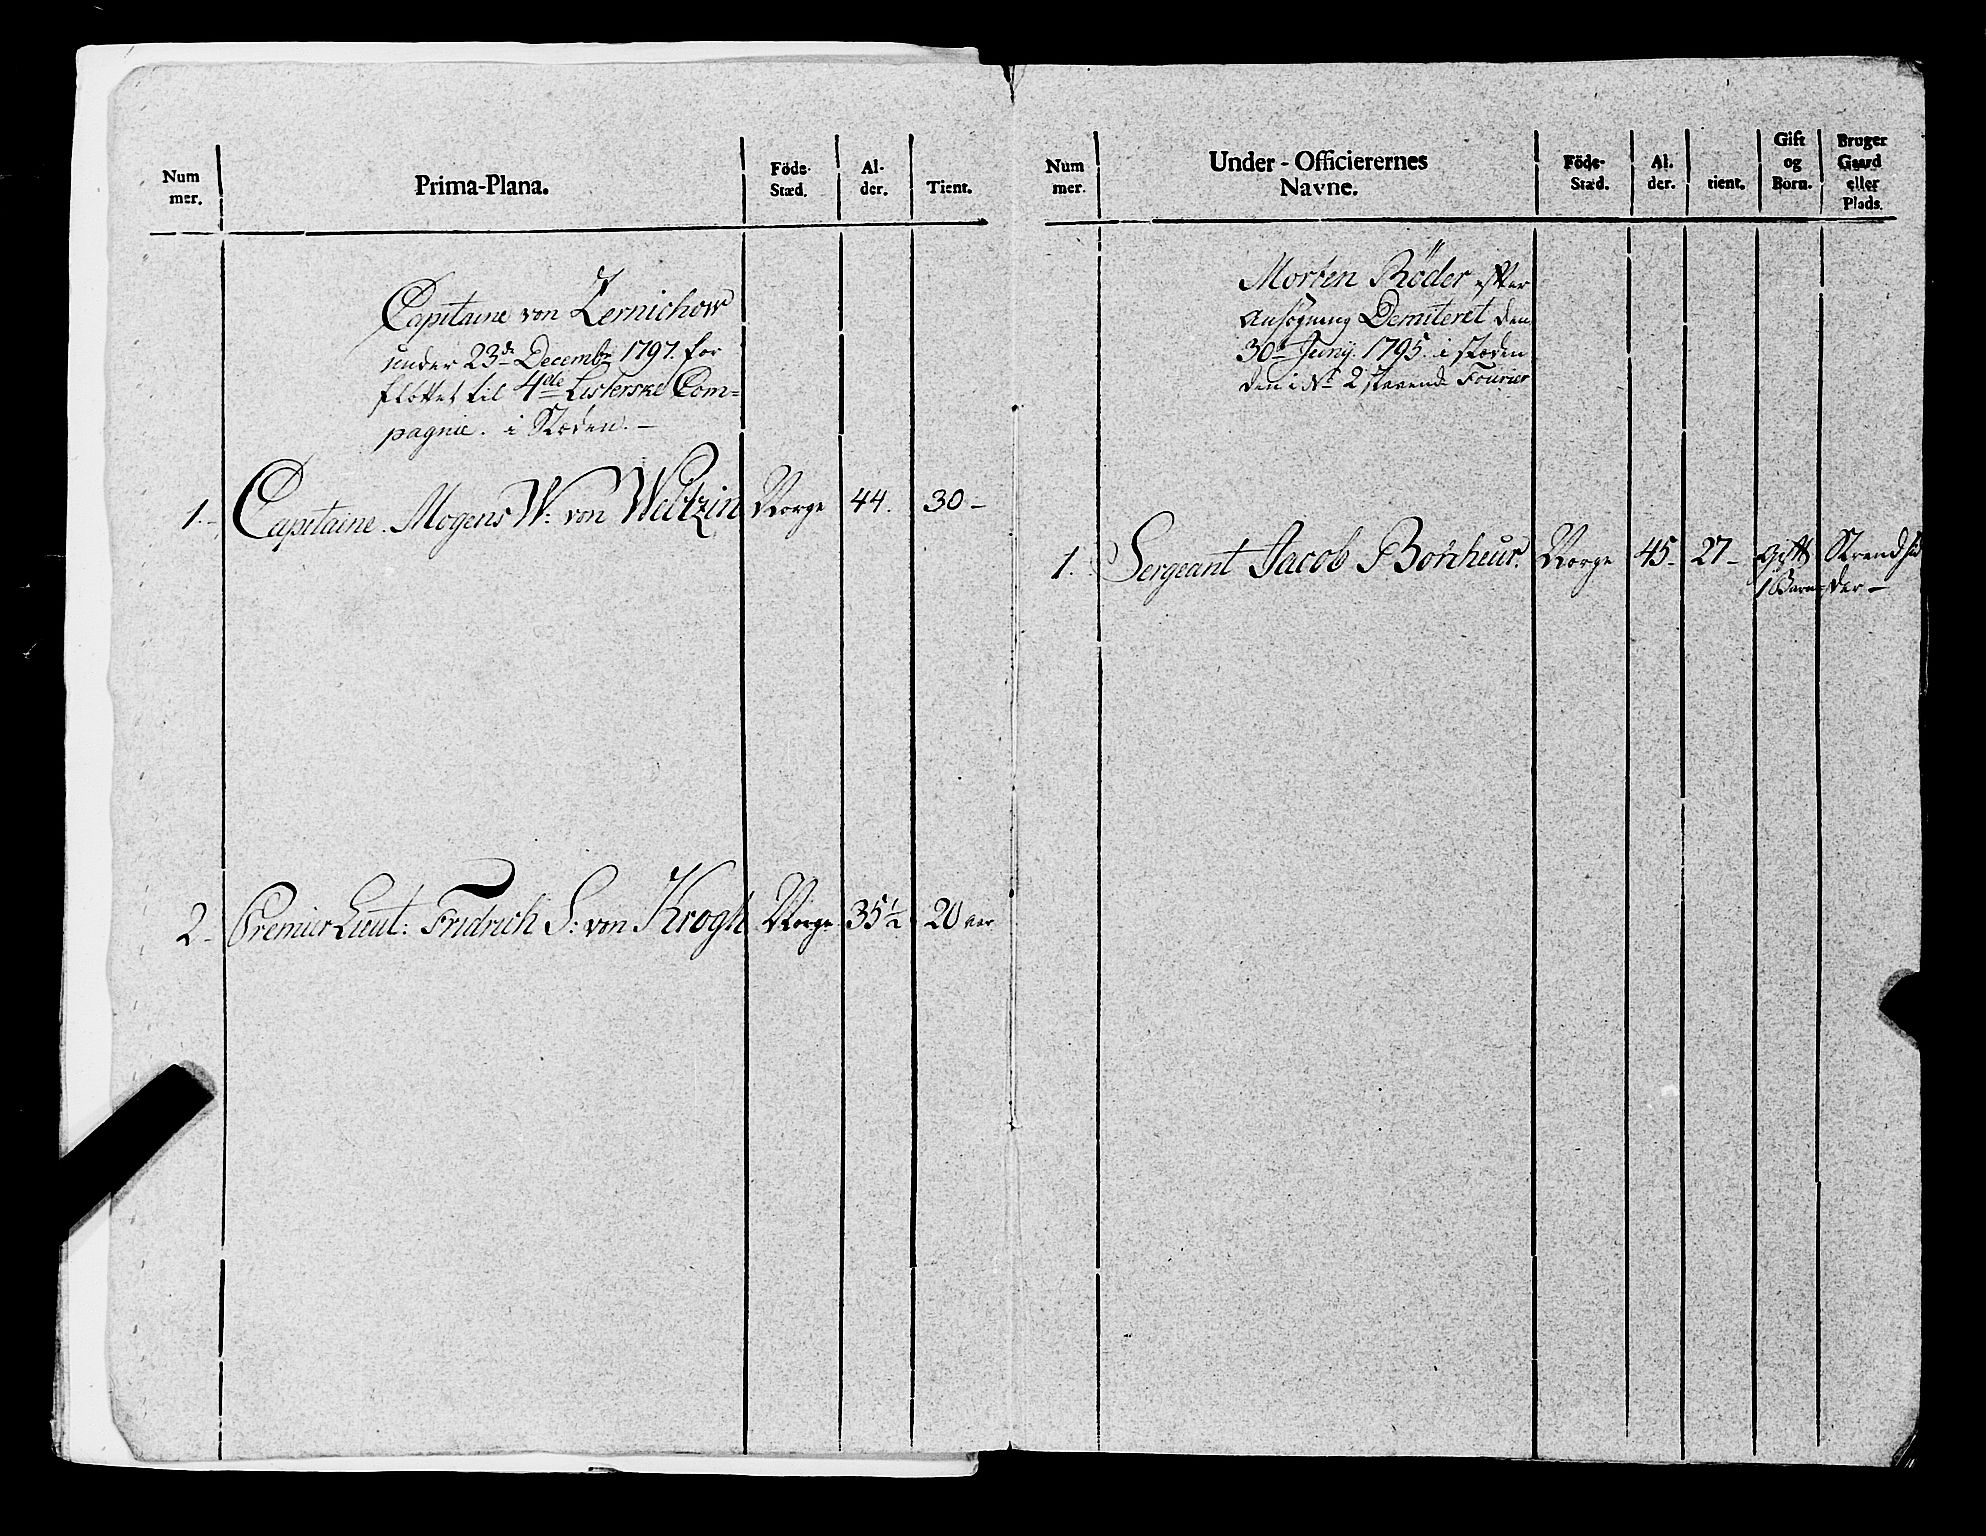 Num
mer.
Prima-Plana.
Föde-
Stæd.
Al-
der.
Tient.
Capitaine von Zernichow
under 23de Decembr 1797. for
flöttet til 4de Listerske Com=
pagnie. i Stæden. -
1. - Capitaine. Mogens W: von Weltzin Norge 44. 30 -
2 - Premier Lieut: Fridrich S: von Krogh Norge 35½ 20 aar
Num
mer.
Under-Officierernes
Navne.
Föde-
Stæd.
Al.
der.
tient.
Gift
og
Born.
Bruger
Gaard
eller
Plads.
Morten Röder efter
Ansögning Demiteret den
30te Junij 1795. i stæden
den i No 2 staaende Fourier
1. Sergeant Jacob Bonheur. Norge 45 - 27 - Gift Strendsid
1 Barn =der -